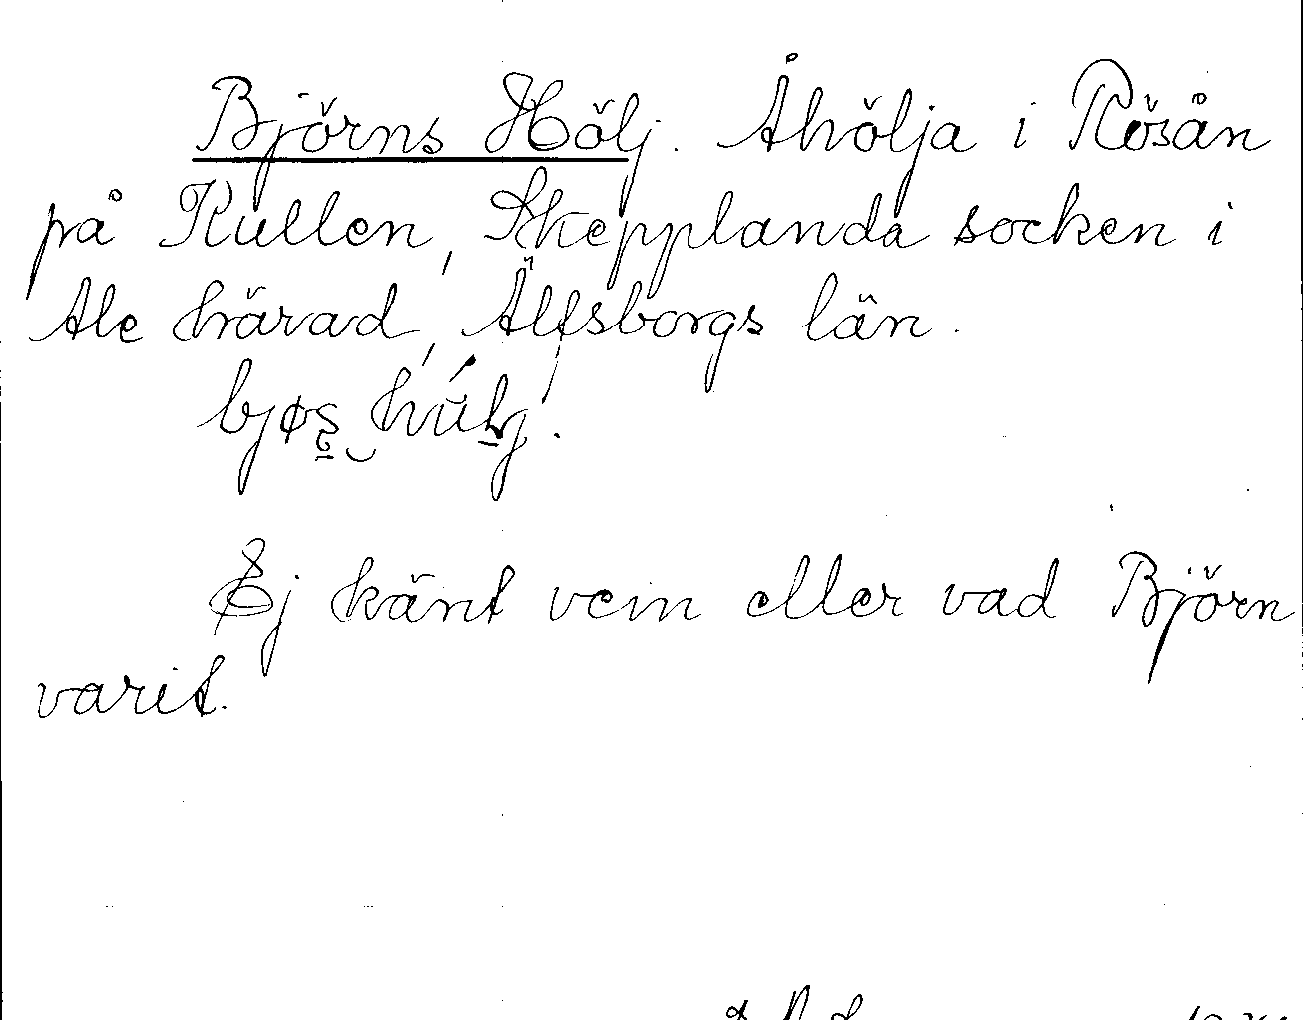 Björns Hölj. Åhölja i Rösån
på Kullen, Skepplanda socken i
Ale härad, Älfsborgs län.
Ej känt vem eller vad Björn
varit.